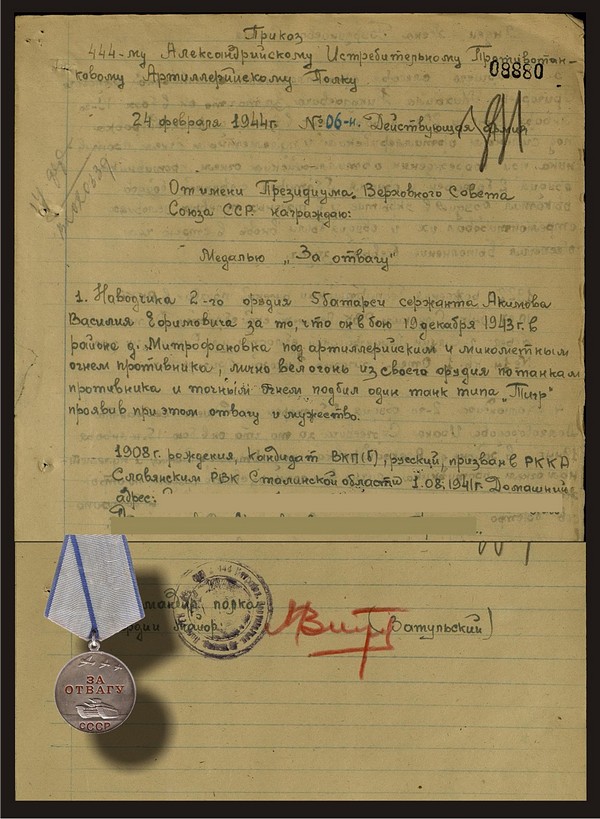 Приказ
444-му Александрийскому Истребительному Противотан-
ковому Артиллерийскому Полку
08880
24 февраля 1944г. № 06-н. Действующая армия
От имени Президиума Верховного Совета
Союза ССР награждаю:
Медалью „За отвагу"
1. Наводчика 2-го орудия 5 батареи сержанта Акимова
Василия Ефимовича за то, что он в бою 19 декабря 1943 г. в
районе д. Митрофановка под артиллерийским и минометным
огнем противника, лично вел огонь из своего орудия по танкам
противника и точным огнем подбил один танк типа „Тигр"
проявив при этом отвагу и мужество.
1908 г. рождения, кандидат ВКП(б), русский, призван в РККА
Славянским РВК Сталинской области 1.08.1941г. Домашний
адрес:
полка
майор: (Ватульский)
ЗА
ОТВАГУ
СССР